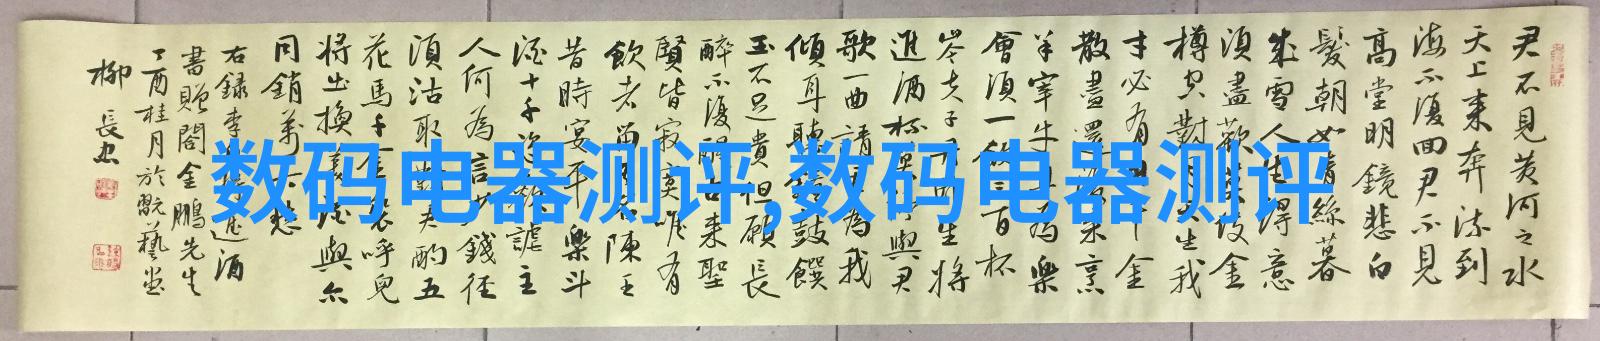 君不見黄河之水
天上来奔流到
海不復回君不見
高堂明鏡悲白
髮朝如青絲暮
成雪人生得意
須盡歡莫使金
樽空對月天生我
才必有用千金
散盡還復来烹
羊宰牛且為樂
會須一飲三百杯
岑夫子丹邱生将
進酒杯莫停與君
歌一曲請君為我
傾耳聽鼓饌
玉不足貴但願長
醉不復醒古来聖
賢皆寂寞唯有
飲者留名陳王
昔時宴平樂斗
酒十千恣歡謔主
人何為言少錢徑
須沽取對君酌五
花馬千金裘呼兒
将出換美酒與尔
同銷萬古愁
右録李白進酒
書贈閤金鵬先生
丁酉桂月於翫藝堂
柳長忠
数码电器测评,数码电器测评